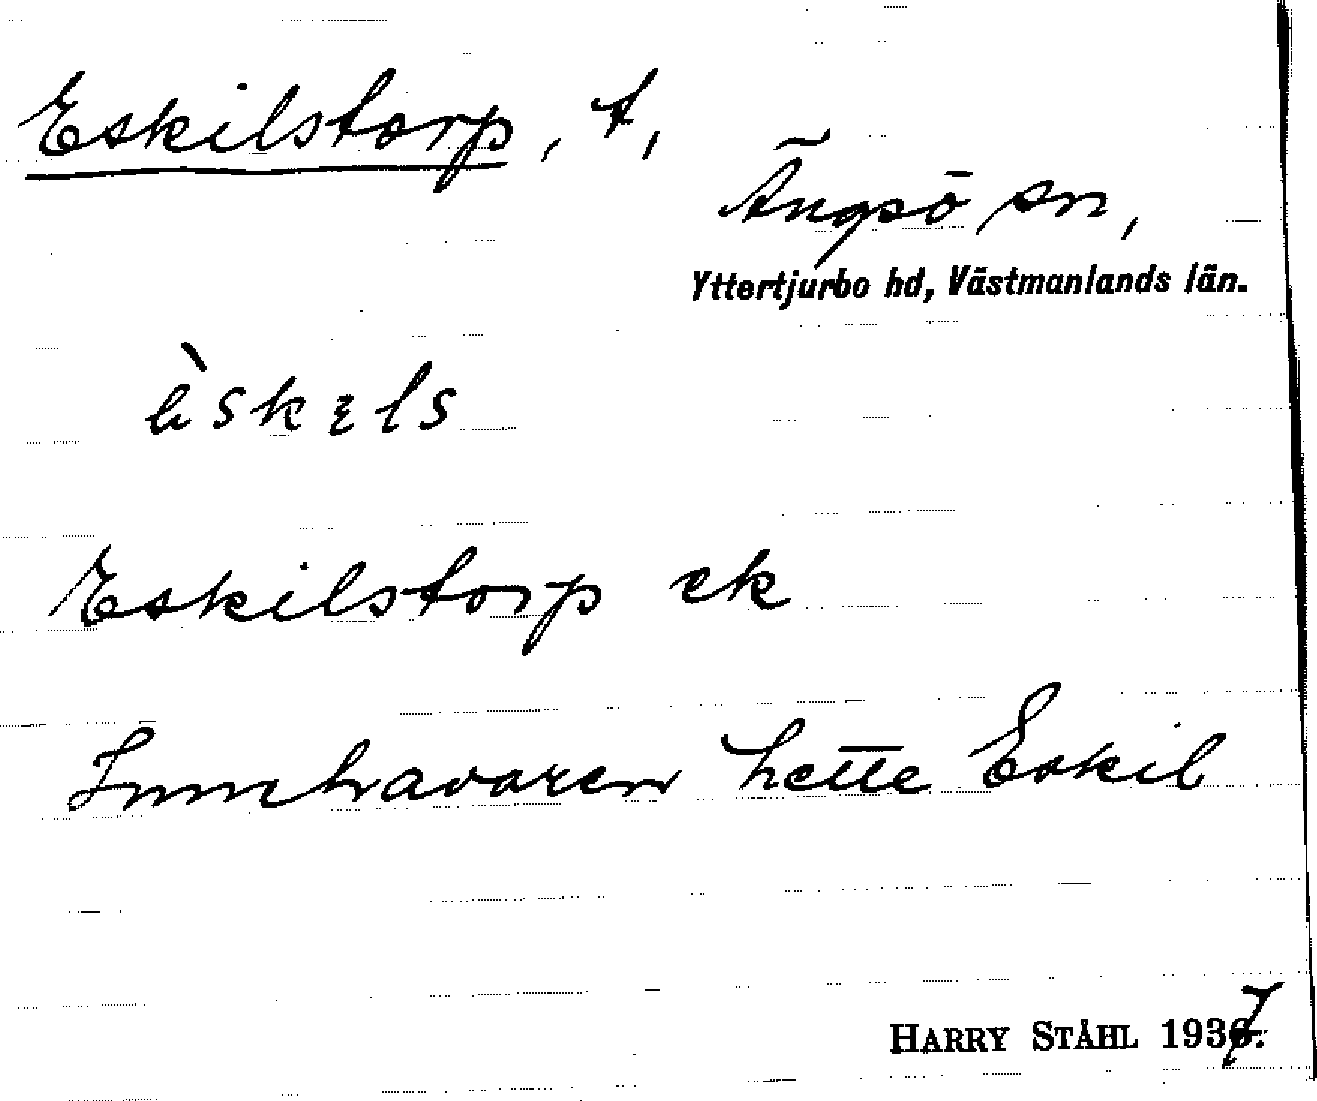 Eskilstorp, t,
Ängsö sn,
Yttertjurbo hd, Västmanlands län.
èskɩls
Eskilstorp ek
Innehavaren hette Eskil
HARRY STÅHL 1937.